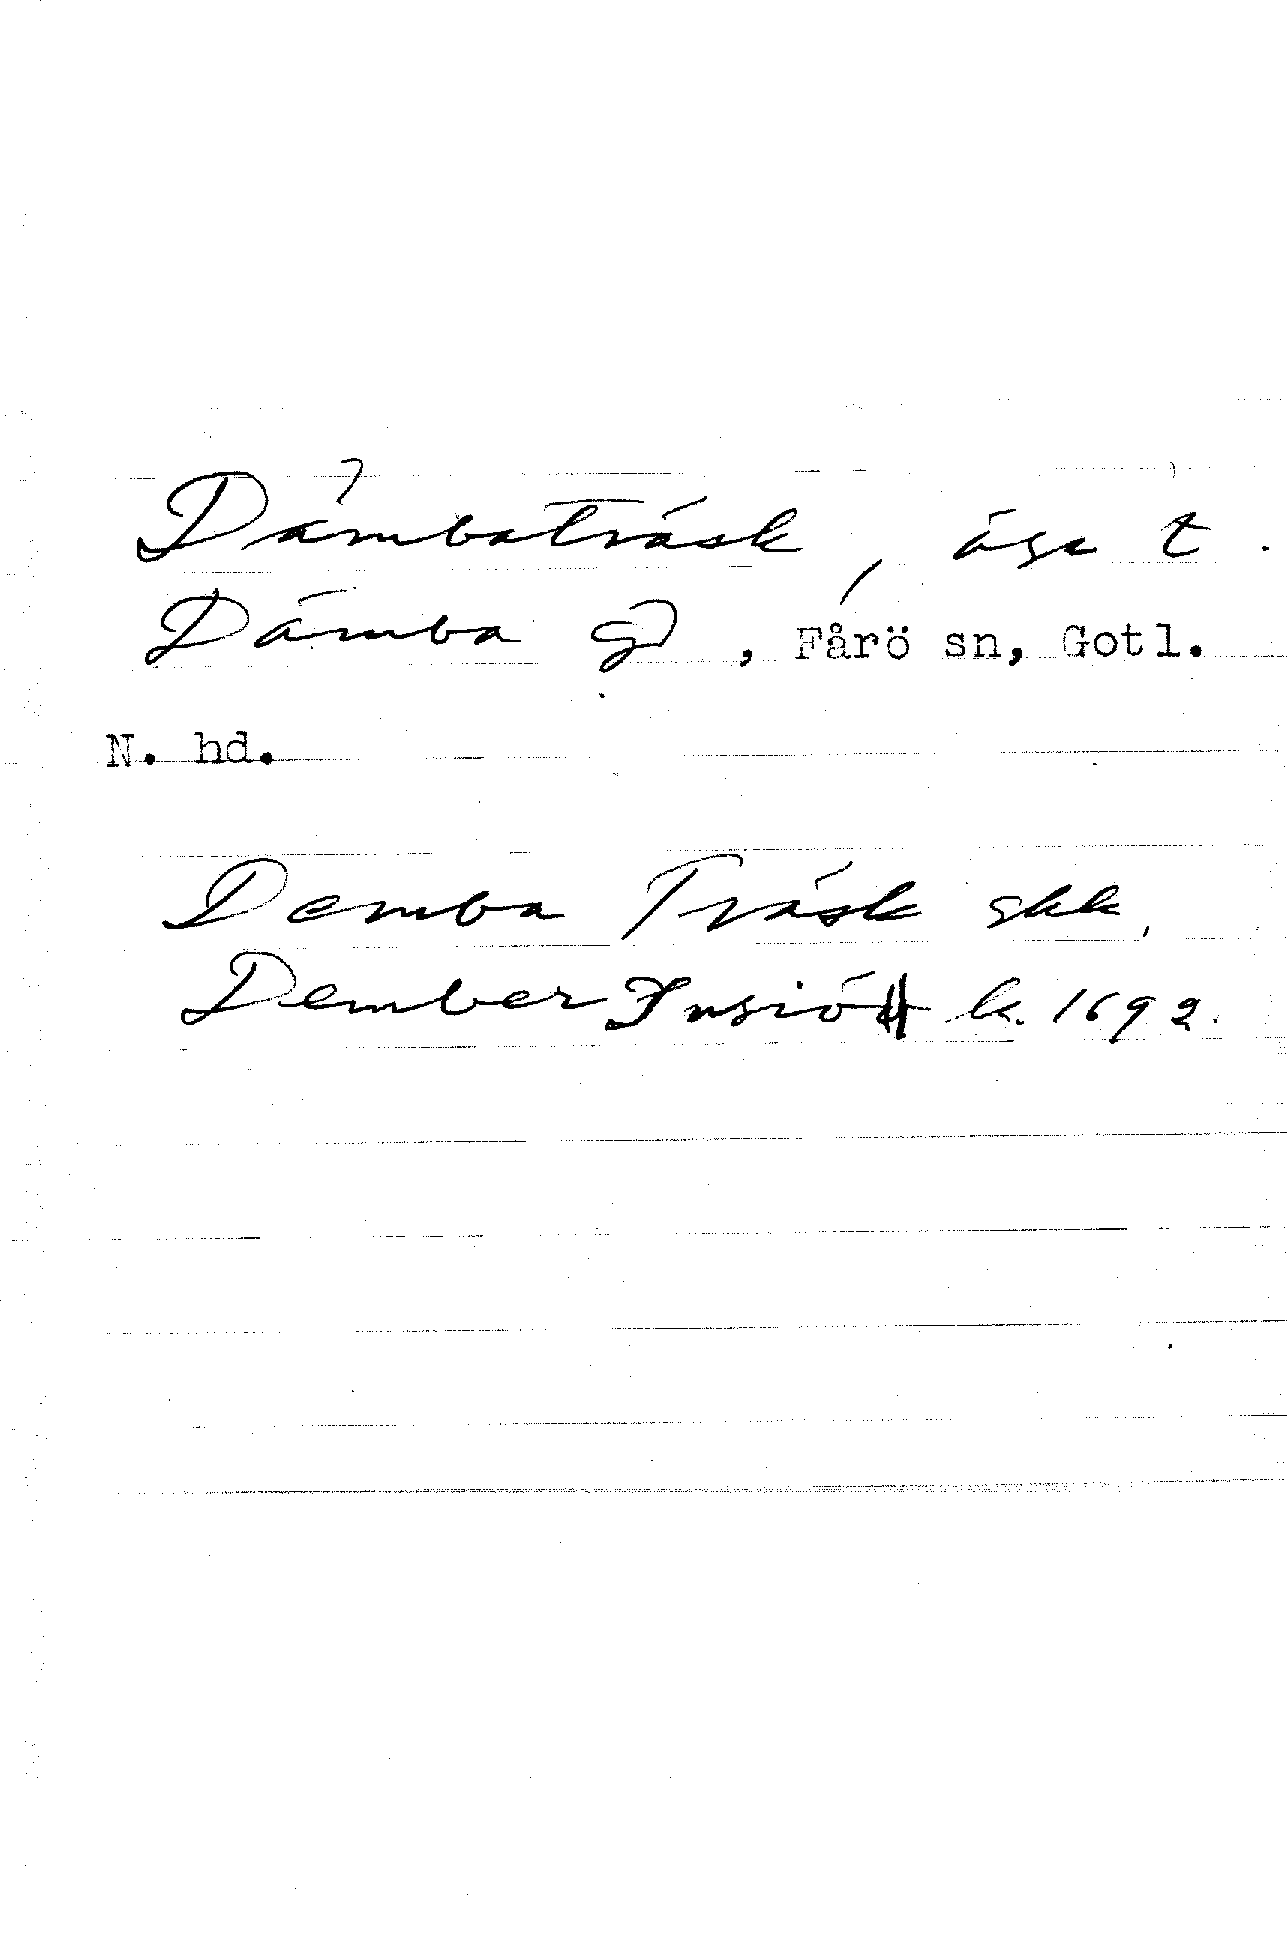 Dämbaträsk, äga t.
Dämba gd, Fårö sn, Gotl.
N. hd.
Demba Träsk skk,
Dember Insiö k. 1692.